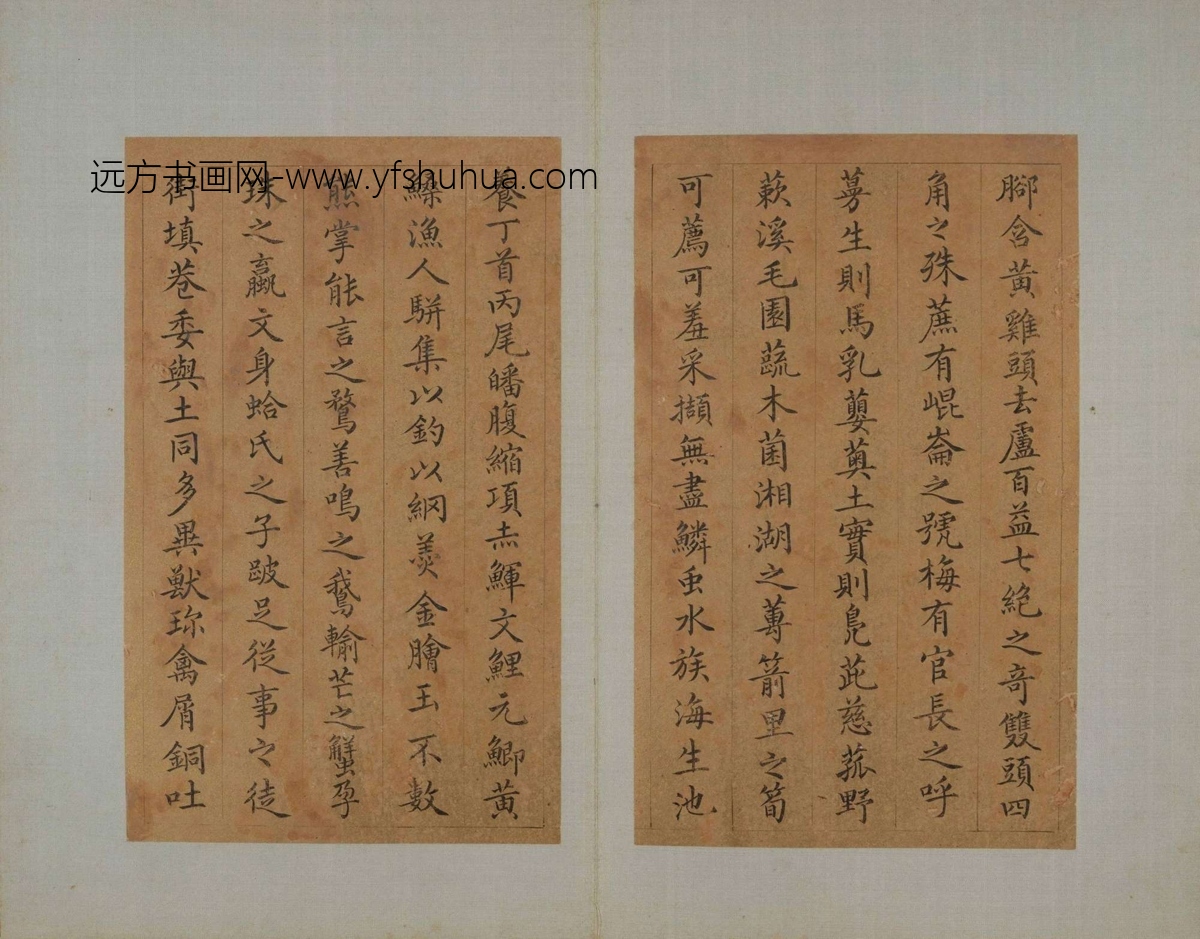 腳含黃雞頭去盧百益七絶之奇雙頭四
角之殊蔗有崐崙之號梅有官長之呼
蔓生則馬乳蘡薁土實則鳧茈慈菰野
蔌溪毛園蔬木菌湘湖之蓴箭里之筍
可薦可羞采擷無盡鱗虫水族海生池
養丁首丙尾皤腹縮項赤鯶文鯉元鯽黃
鱢漁人駢集以釣以網羙金膾玉不數
熊掌能言之鶩善鳴之鵝輸芒之蟹孕
珠之蠃文身蛤氏之子跛足從事之徒
街填巷委與土同多異獸珎禽屑銅吐
远方书画网-www.yfshuhua.com